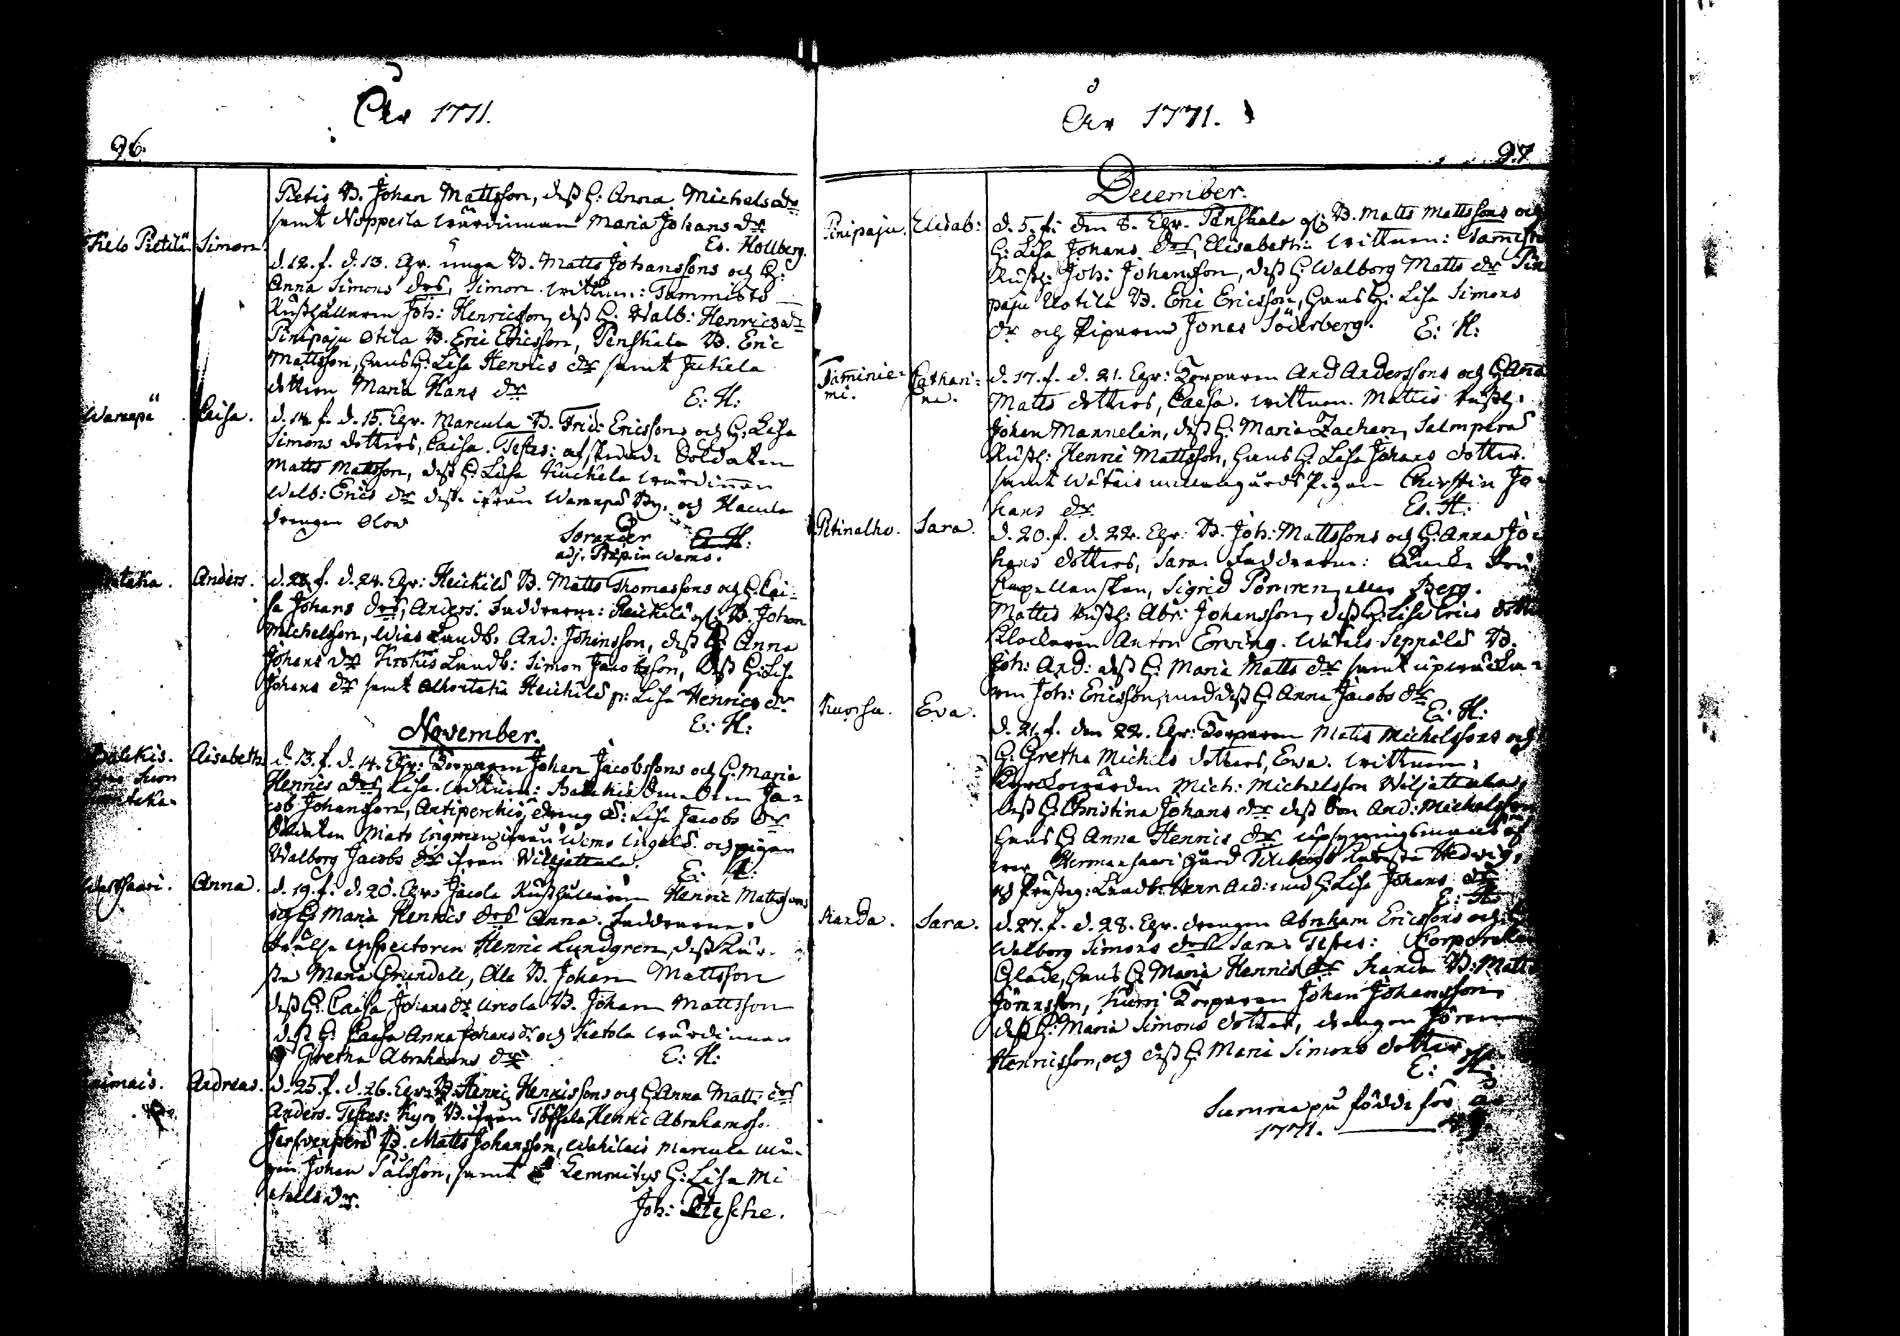 År 1771.
96.
Pietis B. Johan Mattsson, dess H. Anna Michelsdr
samt Noppesla wärdinnan Maria Johans dr
Es. Hollberg.
Kelo Pietilä. Simon.
d. 12. f. d. 13. Egr. unga B. Matts Johanssons och H:
Anna Simons drs, Simon. wittnen: Tammisto
Rusthållaren Joh: Henricsson, dess H. Walb: Henricsdr
Pinipaju Otila B. Eric Ericsson, Penkala B. Eric
Mattsson, hans H: Lisa Henrics dr samt Jutiela
dottren Maria Hans dr
E: H:
Warenpä Caisa.
d. 14. f. d. 15. Egr. Marcula B. Frid: Ericssons och H: Lisa
Simons dotters, Caisa. Testes: afskedade Soldaten
Matts Mattsson, dess H: Lisa Kuckela wärdinnan
Walb: Erics dr dito ifrån Warenpä By. och Hacula
drengen Olov
Sorander E. H:
adj. Past: in Wemo.
Anders.
d. 23. f. d. 24. Egr: Heickilä B. Matts Thomassons och H. Cai-
sa Johans drs, Anders. Faddrarne: Heickilä gl. B. Johan
Michelsson, Wias Landb. And: Johansson, dess H: Anna
Johans dr Krokus Landb: Simon Jacobsson, dess H: Lisa
Johans dr samt Alhoitaka Heickilä p: Lisa Henrics dr.
E: H:
November.
Palckis. Elisabeth.
d. 13. f. d. 14. Egr: Torparen Johan Jacobssons och H. Maria
Henrics drs Lisa. wittnen: Ja-
cob Johansson, dreng S: Lisa Jacobs dr
Soldaten Mats ifrån Wemo och pigan
Walborg Jacobs dr ifrån Wiljattula.
E: H:
Anna.
d. 19. f. d. 20. Egr: Jacola Rusthållaren Henric Mattssons
och H. Maria Henrics drs Anna. Faddrarne:
Inspectoren Henric Lundgren, dess Kär-
sta Maria Gründell, Ala B. Johan Mattsson
dess H: Caisa Johans dr Uncola B. Johan Mattsson
dess H: Caisa Anna Johans dr och Katola wärdinnan
Gretha Abrahams dr
E: H:
Andreas.
d. 25. f. d. 26. Egr: B. Henric Henricssons och H. Anna Matts drs
Anders. Testes: Kyrö B. ifrån Töffala Henric Abrahamss.
Jerfvenpä B. Matts Johansson, Wahilais Marcula un-
gen Johan Pålsson, samt Lemmitys H: Lisa Mi
chelsdr.
Joh: Petesche.
År 1771.
97
December.
Pinipaju. Elisab:
d. 5. f: den 8. Egr. Penkala gl: B. Matts Mattssons och
H: Lisa Johans drs, Elisabeth: wittnen: Tammisto
Rusth: Joh: Johansson, dess H. Walborg Matts dr Pini
paju Uotila B. Eric Ericsson, hans H: Lisa Simons
dr och Piparen Jonas Söderberg.
E: H:
Taminie-
mi. Cathari-
na.
d. 17. f. d. 21. Egr: Torparen And Anderssons och H. Anna
Matts dotters, Caisa. wittnen. Mattis Rusth:
Johan Mannelin, dess H: Maria Zachari, Salmperä
Rusth: Henric Mattsson, hans H: Lisa Johans dotter.
samt Wätäis Pigan Cherstin Jo-
hans dr
Es. H:
Petinalho. Sara.
d. 20. f. d. 22. Egr: B. Joh: Mattssons och H: Anna Jo-
hans dotters, Sara. Faddrarne: Encke Fru
Capellanskan, Sigrid eller Berg.
Mattis Rusth: Abr: Johansson, dess H: Lisa Erics dotter
Klockaren Anton Erving. Wätäis Seppälä B.
Joh: And: dess H: Maria Matts dr samt
ren Joh: Ericsson, med dess H. Anna Jacobs dr
E: H:
Kuorsu. Eva.
d. 21. f. den 22. Egr: Torparen Matts Michelssons och
H: Gretha Michels dotters, Ewa. wittnen:
Kyrkowärden Mich: Michelsson Wiljattula,
dess H: Christina Johans dr dess Son And: Michelsson
hans H: Anna Henrics dr
Hermansaari gård Hedwig,
Landb: And: med H: Lisa Johans dr
E: H:
Kanda. Sara.
d. 27. f. d. 28. Egr. drengen Abraham Ericssons och H
Walborg Simons drs Sara. Testes: Corporalen
Glade, hans H: Maria Henrics dr Kanda B: Matts
Jöransson, Kurri Torparen Johan Johansson,
dess H: Maria Simons dotter, drengen Jöran
Henricsson, och dess H: Maria Simons dotter
E: H:
Summa på födde för år
1771.